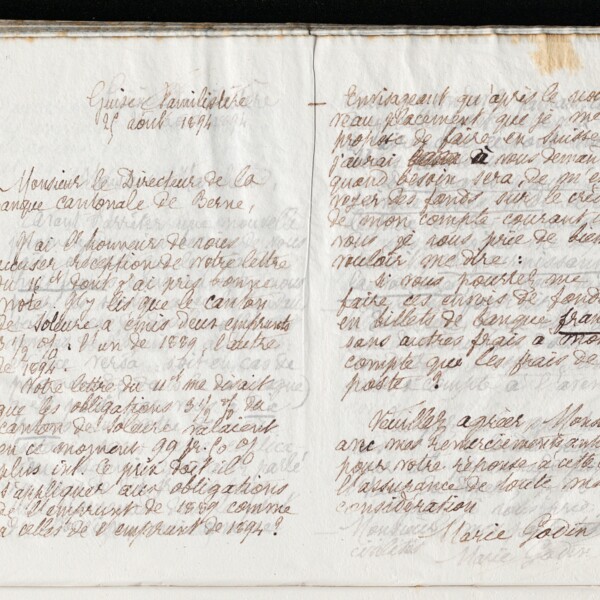 Guise Familistère
25 août 1894
Monsieur le Directeur de la
anque cantonale de Berne,
J'ai l'honneur de vous
accuser réception de votre lettre
du 16 ct dont j'ai pris bonne
note. J'y lis que le canton
de Soleure a émis deux emprunts
3 1/2 % : l'un de 1889, l'autre
de 1894.
Votre lettre du 11 me disait
que les obligations 3 1/2 % du
canton de Soleure valaient
en ce moment 99 fr. 50 %
plus int. Ce prix doit-il
s'appliquer aux obligations
de l'emprunt de 1889 comme
à celles de l'emprunt de 1894 ?
Envisageant qu'après le nou
veau placement que je me
propose de faire en Suisse
j'aurai à vous deman
quand besoin sera, de m'en
voyer des fonds sur le cré
de mon compte courant
vous je vous prie de bien
vouloir me dire :
Si vous pourrez me
faire ces envois de fonds
en billets de banque fran
sans autres frais à mon
compte que les frais de
poste ?
Veuillez agréer, Mons
avec mes remerciements ant
pour votre réponse à cette
l'assurance de toute ma
considération
Marie Godin